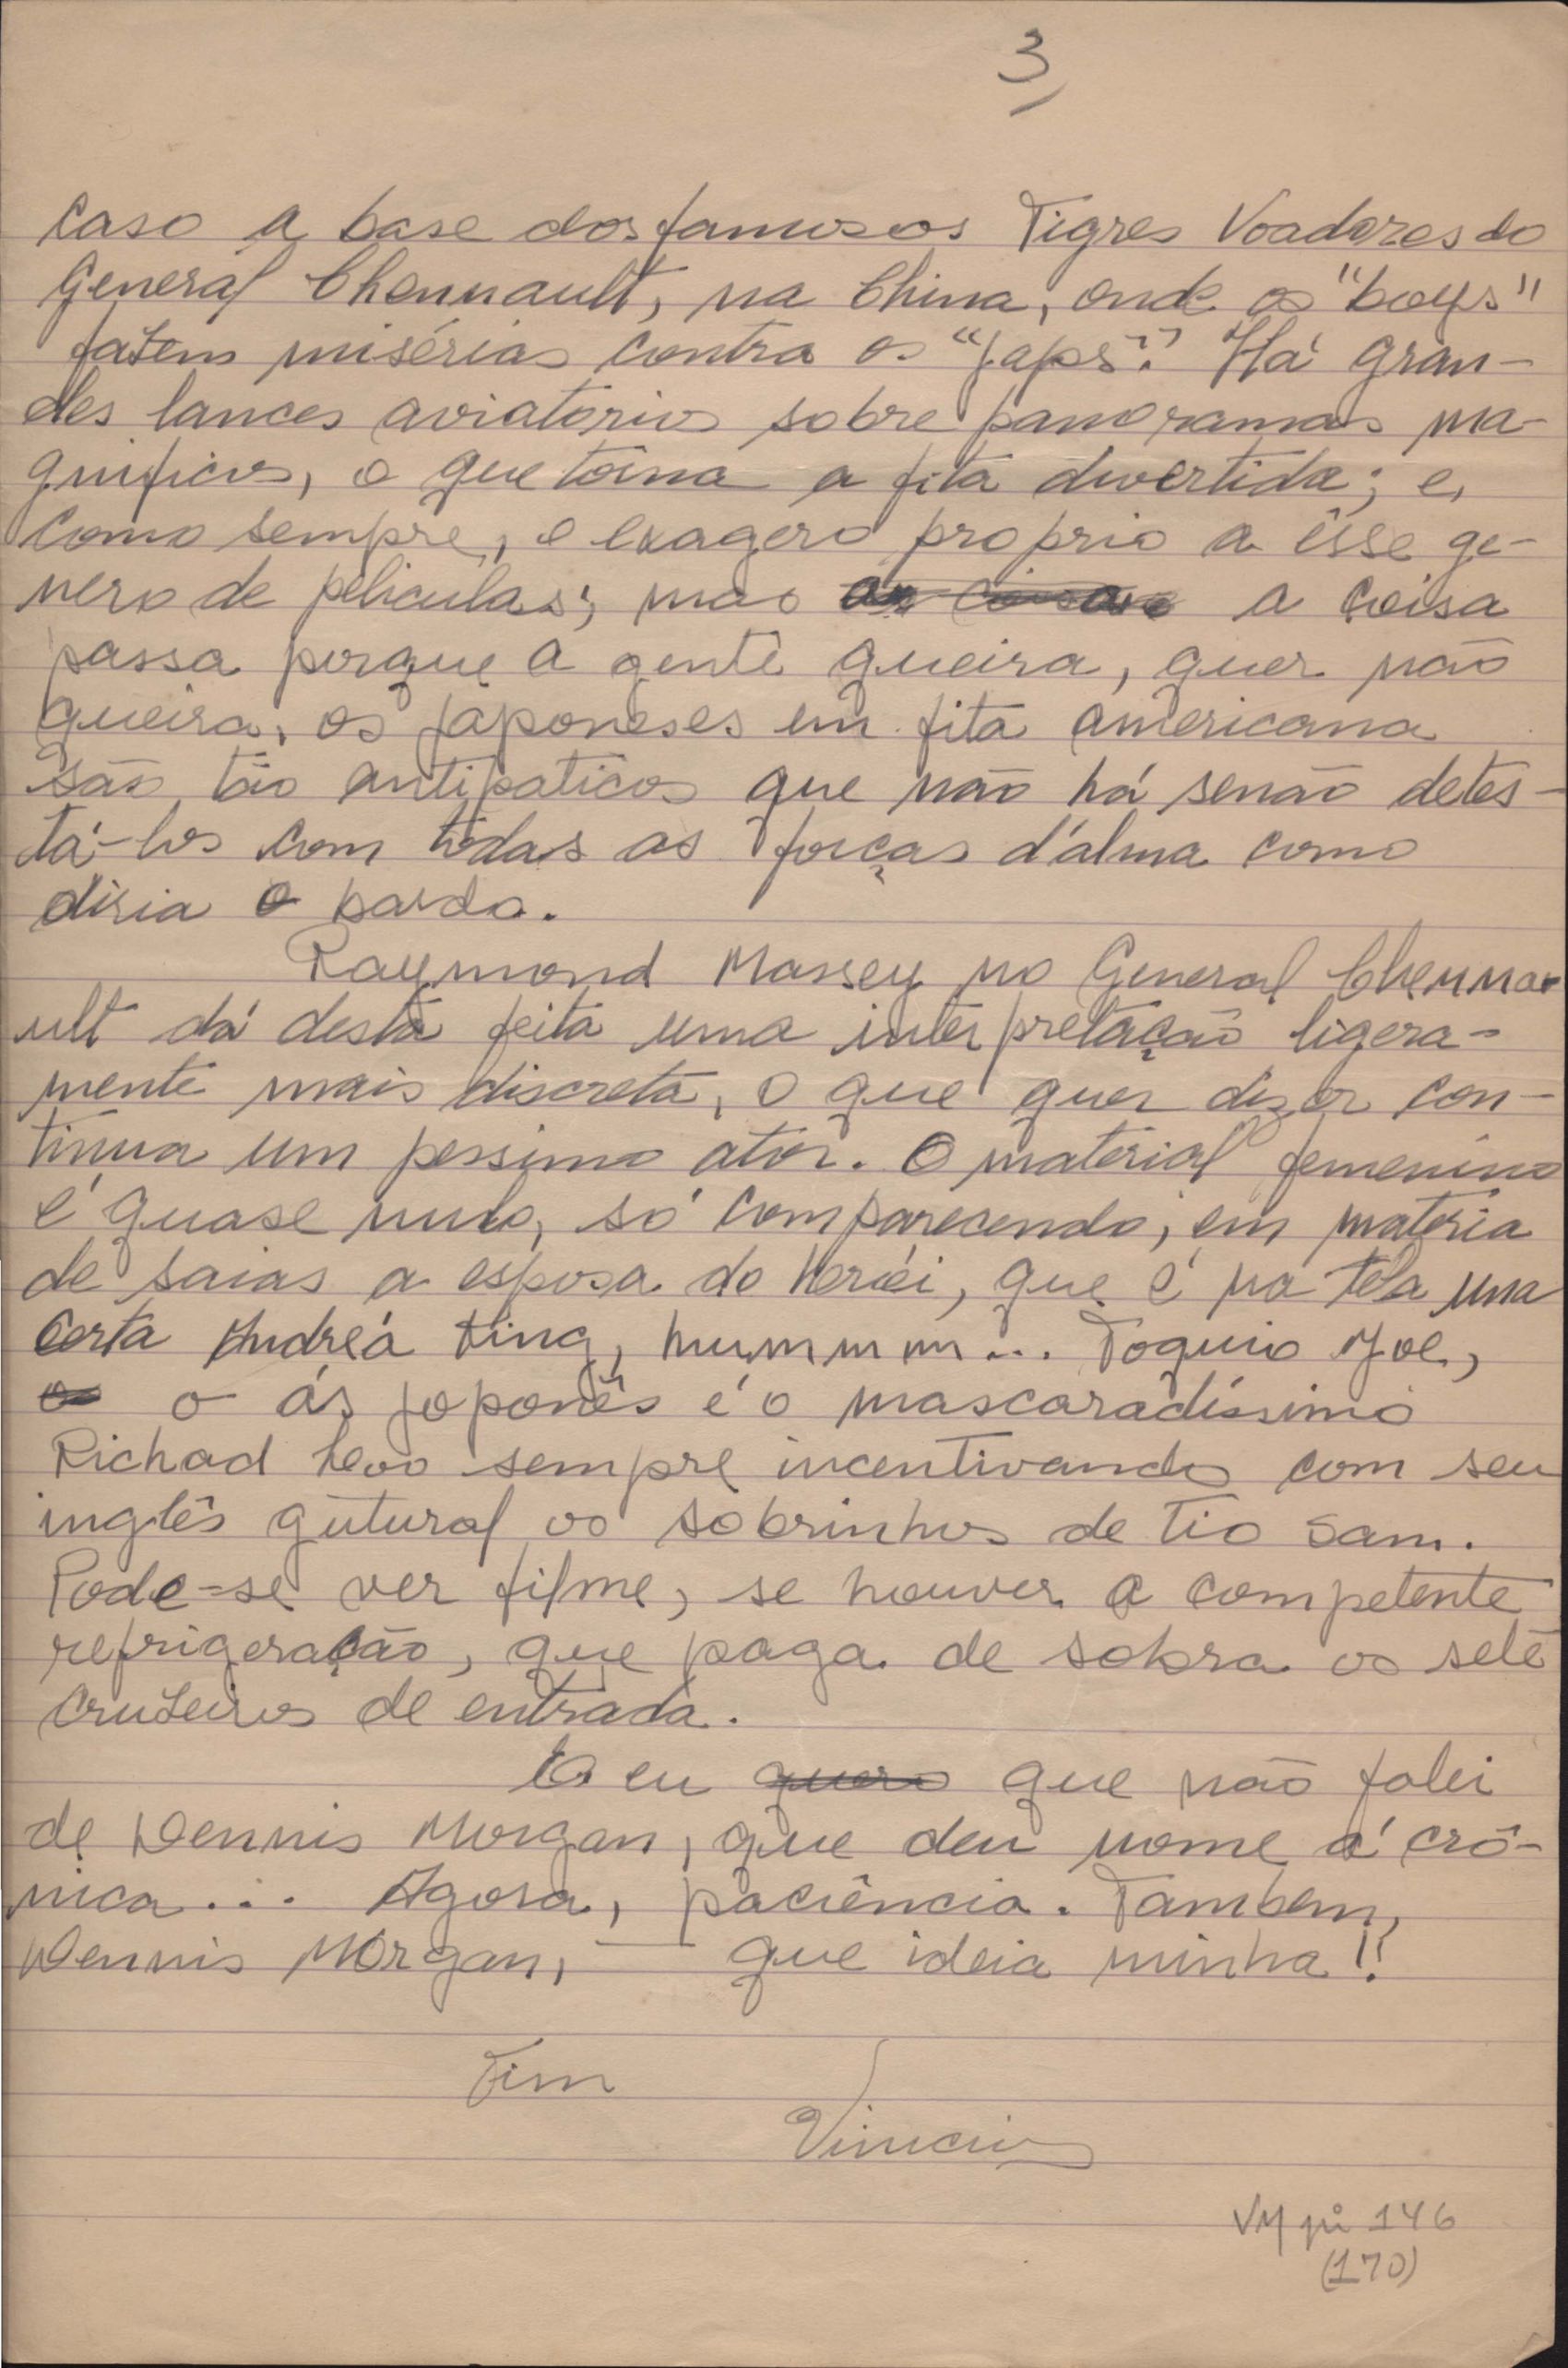 3
caso a base dos famosos Tigres Voadores do
General Chennault, na China, onde os "boys"
fazem misérias contra os "japs". Há gran-
des lances aviatórios sobre panoramas ma-
gnificos, o que torna a fita divertida; e,
como sempre, o exagero proprio a êsse ge-
nero de peliculas; mas as coisas a coisa
passa porque a gente queira, quer não
queira, os japoneses em fita americana
são tão antipaticos que não há senão detes-
tá-los com todas as forças d'alma como
diria o bardo.
Raymond Massey no General Chenna
ult dá desta feita uma interpretação ligera-
mente mais discreta, o que quer dizer con-
tinua um pessimo ator. O material femenino
é quase nulo, só comparecendo, em materia
de saias a esposa do heroéi, que é na tela uma
certa Andréa King, hummmm... Toquio Joe,
o o ás japonês é o mascaradíssimo
Richad Leoo sempre incentivando com seu
inglês gutural os sobrinhos de Tio Sam.
Pode-se ver filme, se houver a competente
refrigeração, que paga de sobra os sete
cruzeiros de entrada.
E eu quero que não falei
de Dennis Morgan, que deu nome á crô-
nica... Agora, paciência. Tambem,
Dennis Morgan, — que ideia minha!!
Fim
Vinicius
VM pi 146
(170)